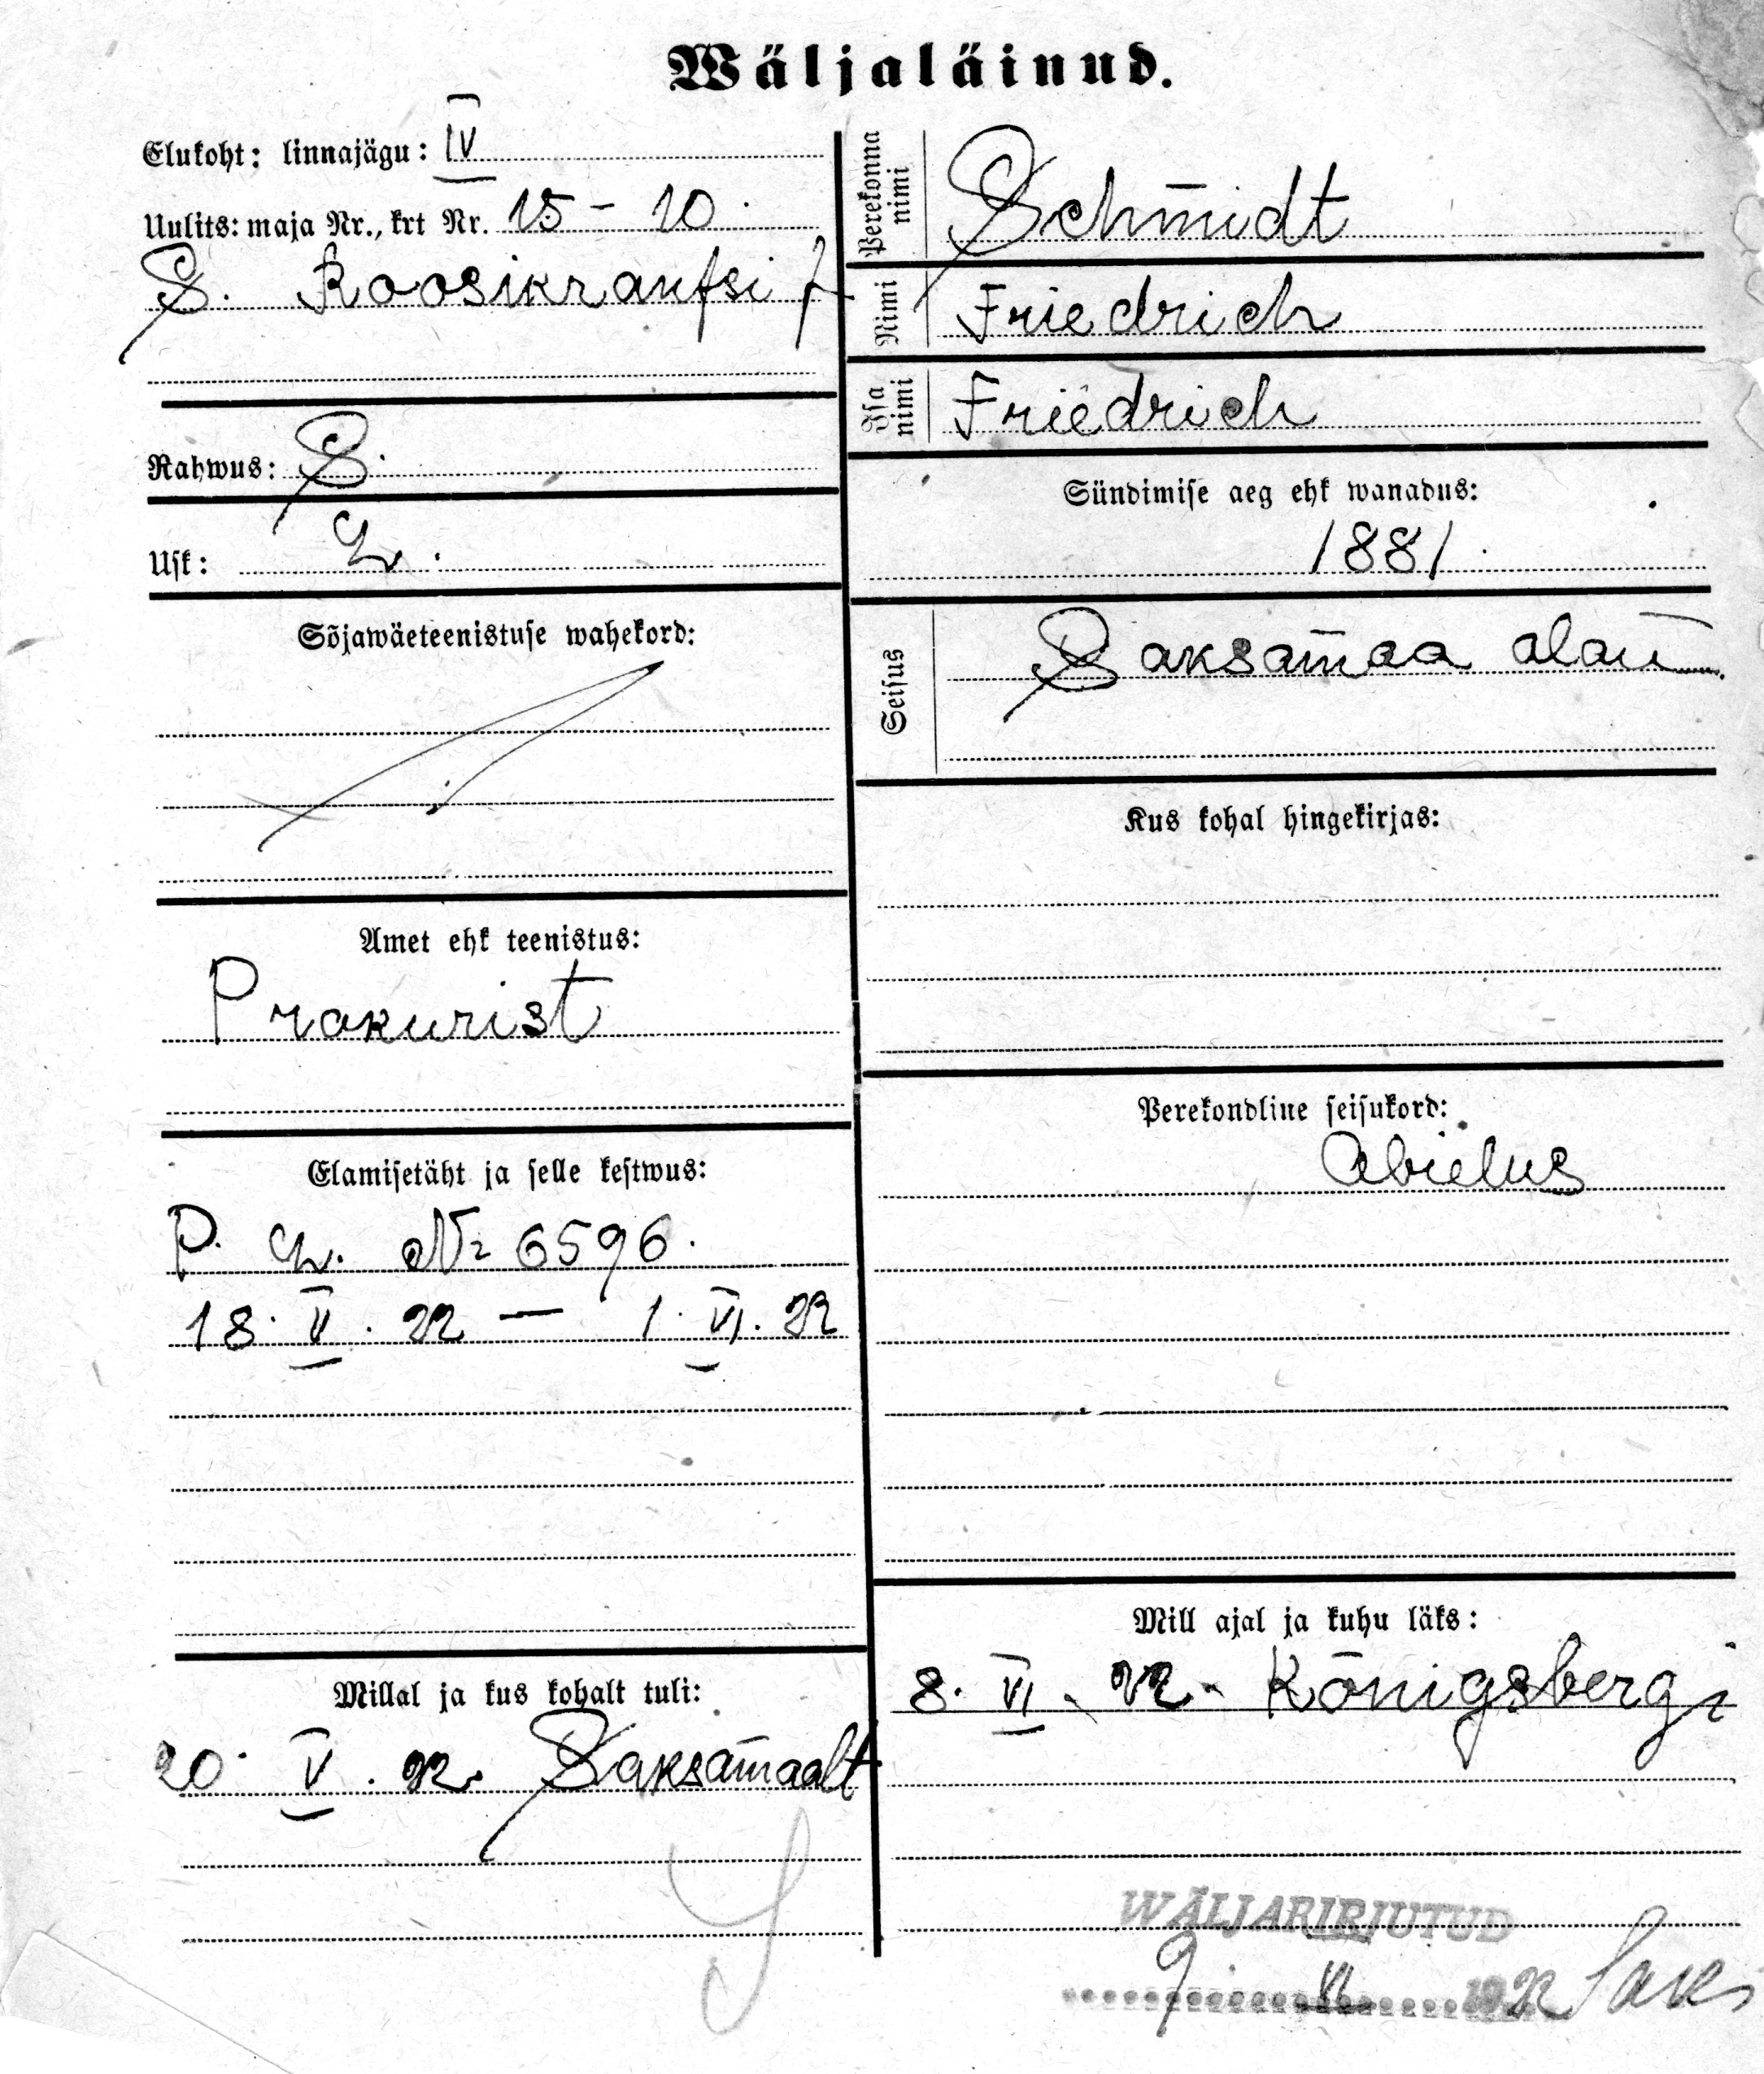 Wäljaläinud.
Elukoht: linnajägu: IV
Uulits: maja Nr., krt Nr. 15 - 10.
S. Roosikrantsi t
Rahwus: S.
Usk: L.
Sõjawäeteenistuse wahekord:
Amet ehk teenistus:
Prokurist
Elamisetäht ja selle kestwus:
P. L. № 6596.
18. V. 22 — 1. VI. 22
Millal ja kus kohalt tuli:
20. V. 22. Saksamaalt
Perekonna nimi Schmidt
Nimi Friedrich
Isa nimi Friedrich
Sündimise aeg ehk wanadus:
1881.
Seisus Saksamaa alam
Kus kohal hingekirjas:
Perekondline seisukord:
Abielus
Mill ajal ja kuhu läks:
8. VI. 22. Königsbergi
WÄLJAKIRJUTUD
9. VI 1922 Saks